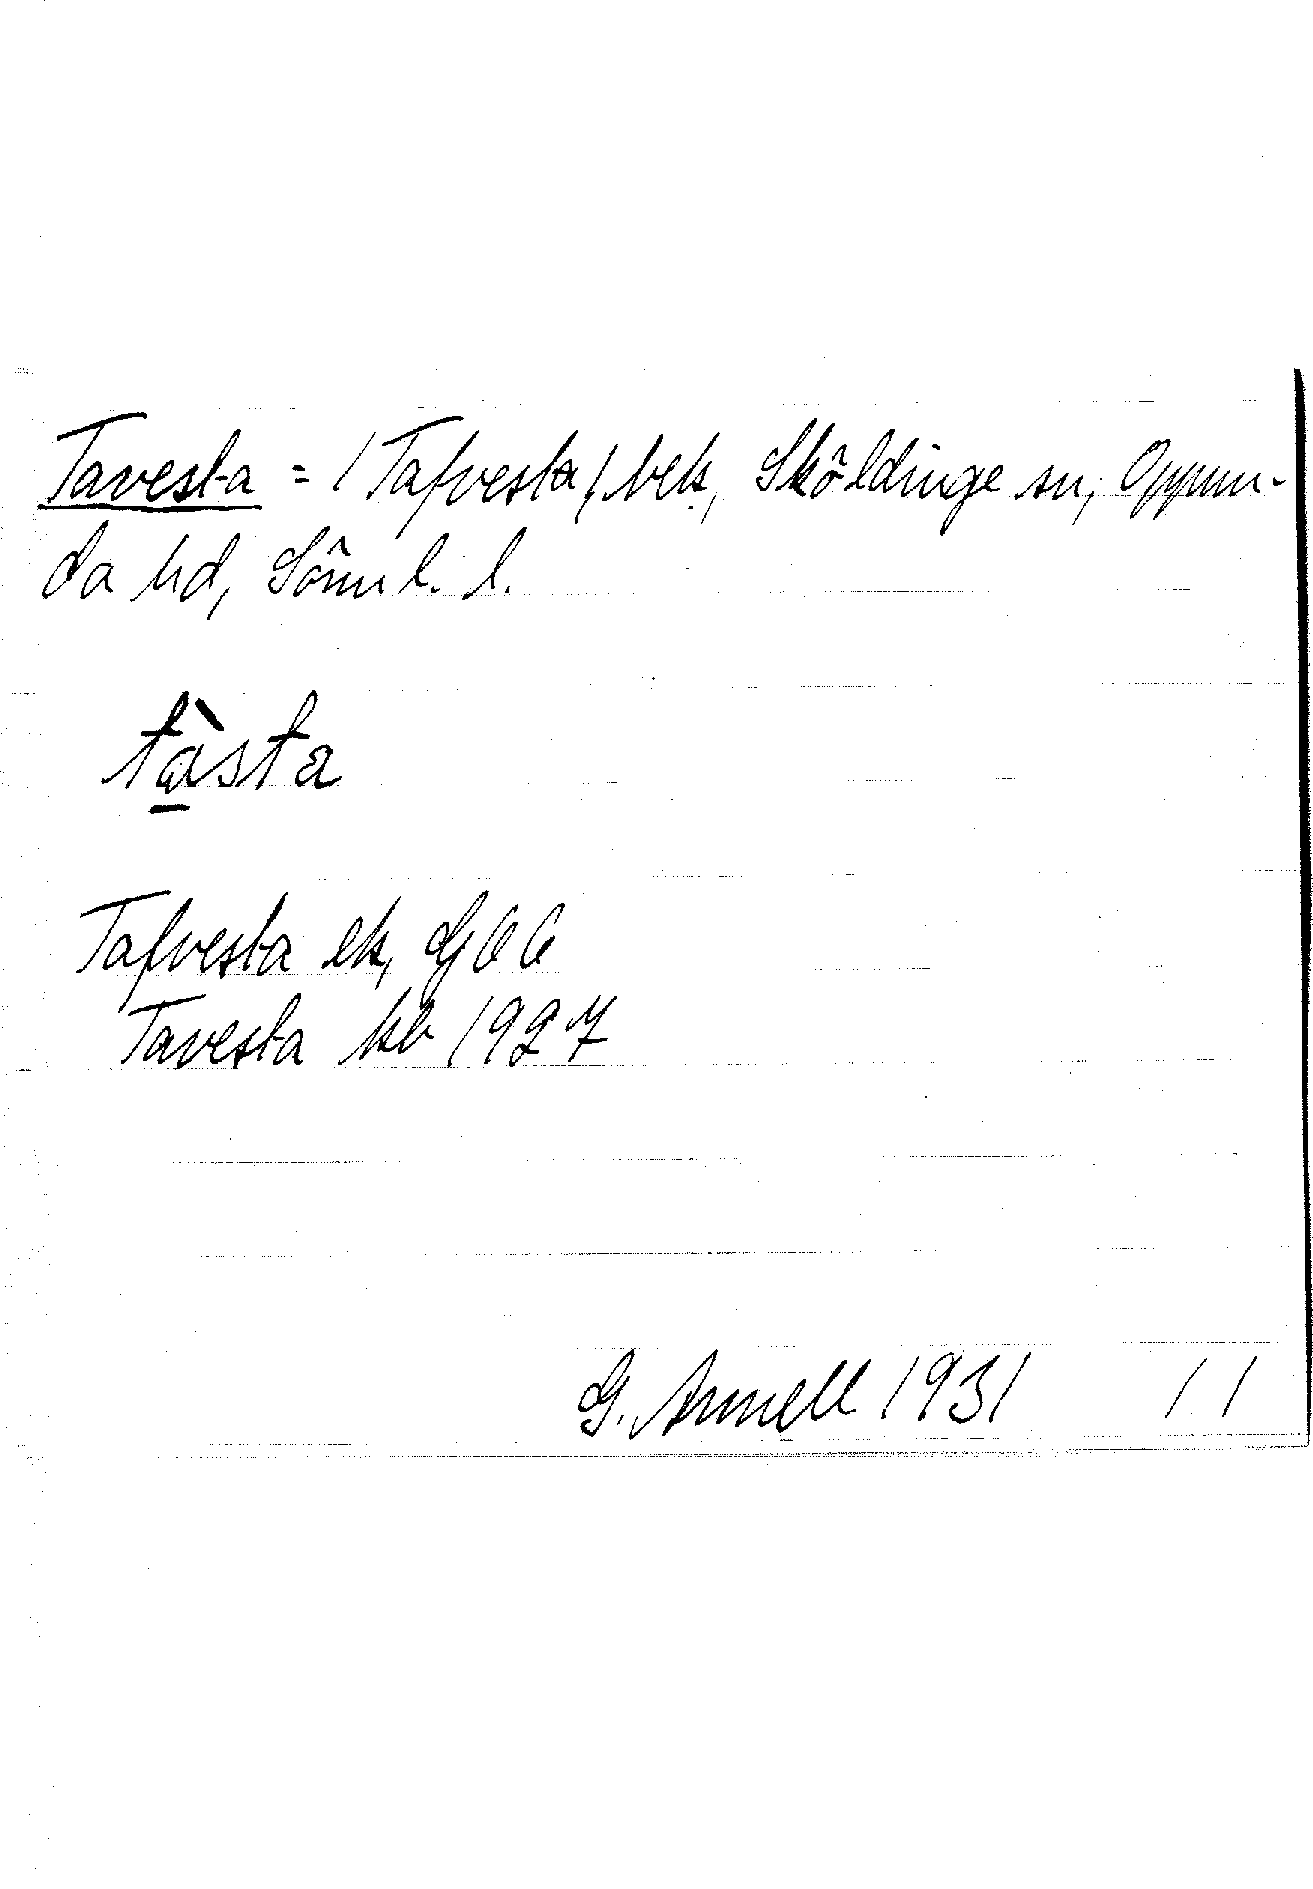 Tavesta = (Tafvesta) bek, Sköldinge sn, Oppun-
da hd, Sörml. l.
tàsta
Tafvesta ek, GEK
Tavesta kb 1927
G. Annell 1931 11